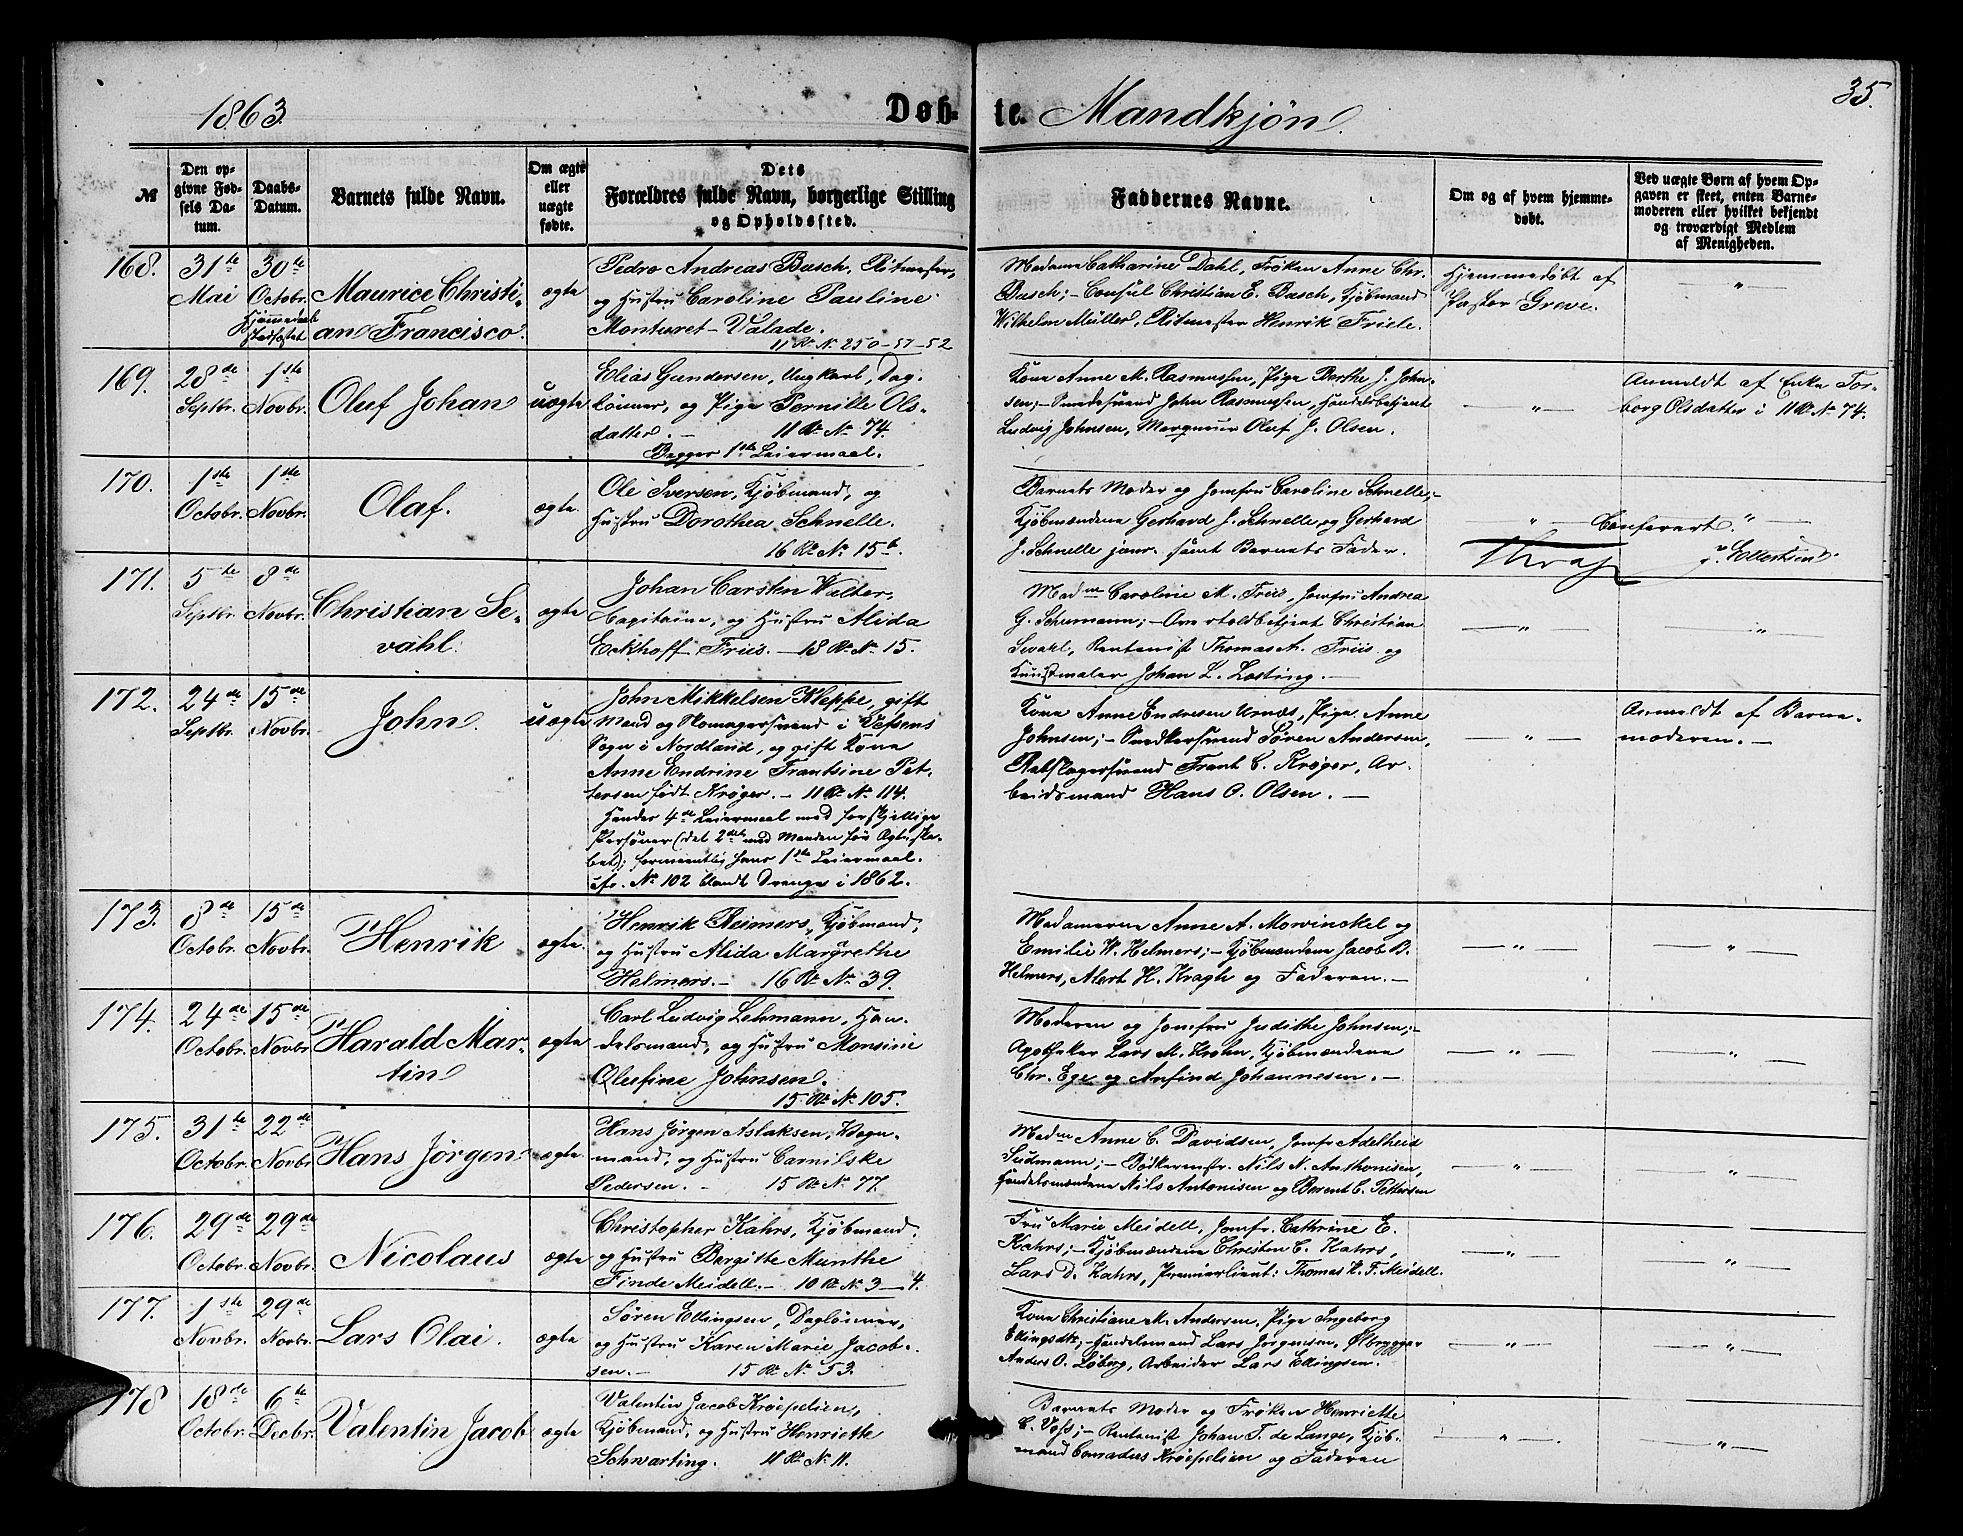 1863.
Døb-
te. Mandkjøn.
35.
№
Den op-
givne Fød-
sels Da-
tum.
Daabs-
Datum.
Barnets fulde Navn.
Om ægte
eller
uægte
fødte.
Dets
Forældres fulde Navn, borgerlige Stilling
og Opholdssted.
Faddernes Navne.
Om og af hvem hjemme-
døbt.
Ved uægte Børn af hvem Op-
gaven er skeet, enten Barne-
moderen eller hvilket bekjendt
og troværdigt Medlem
af Menigheden.
168.
31te
Mai
30te
Octobr.
Hjemmedaab
stadfæstet
Maurice Christi-
an Francisco.
ægte
Pedro Andreas Basch, Ritmester,
og Hustru Caroline Pauline
Monturet-Valade.
11 R. N. 250-57-52
Madame Catharine Dahl, Frøken Anne Chr.
Basch; - Consul Christian E. Basch, Kjøbmand
Wilhelm Müller, Ritmester Henrik Friele.
Hjemmedøbt af
Pastor Greve.
— " —
169.
28de
Septbr.
1ste
Novbr.
Oluf Johan
uægte
Elias Gundersen, Ungkarl, Dag-
lønner, og Pige Pernille Ols-
datter. — 11 R. N. 74.
Begges 1ste Leiermaal.
Kone Anne M. Rasmussen, Pige Berthe J. John-
sen; - Smedesvend John Rasmussen, Handelsbetjent
Ludvig Johnsen, Oluf J. Olsen.
— " —
Anmeldt af Enke Tor-
borg Olsdatter i 11 R. N. 74.
170.
1ste
Octobr.
1ste
Novbr.
Olaf.
ægte.
Ole Iversen, Kjøbmand, og
Hustru Dorothea Schnelle.
16 R. N. 15b.
Barnets Moder og Jomfru Caroline Schnelle; -
Kjøbmændene Gerhard J. Schnelle og Gerhard
J. Schnelle junr. samt Barnets Fader.
— " —
Confereret. " —
J. Ellertsen.
171.
5te
Septbr.
8de
Novbr.
Christian Se-
vahl.
ægte
Johan Carsten Walter,
Capitaine, og Hustru Alida
Eckhoff Friis. — 18 R. N. 15.
Madme Caroline M. Friis, Jomfru Andrea
G. Schumann; - Overtoldbetjent Christian
Sevahl, Rentenist Thomas A. Friis og
Kunstmaler Johan L. Losting. —
— " —
"
172.
24de
Septbr.
15de
Novbr.
John.
uægte
John Mikkelsen Kleppe, gift
Mand og Skomagersvend i Vefsens
Sogn i Nordland, og gift Kone
Anne Endrine Frantsine Pet-
tersen født Krøger. — 11 R. N. 114.
Hendes 4de Leiermaal med forskjellige
Personer (det 2det med Manden før Ægteska-
bet); formeentlig hans 1ste Leiermaal.
cfr. N. 102 blandt Drenge i 1862.
Kone Anne Endresen Urnæs, Pige Anne
Johnsen; - Snedkersvend Søren Andersen,
Rebslagersvend Frant C. Krøger, Ar-
beidsmand Hans O. Olsen. —
— " —
Anmeldt af Barne-
moderen. —
173.
8de
Octobr.
15de
Novbr.
Henrik
ægte.
Henrik Reimers, Kjøbmand,
og Hustru Alida Margrethe
Helmers. — 16 R. N. 39.
Madamerne Anne A. Mowinckel og
Emilie W. Helmers; - Kjøbmændene Jacob B.
Helmers, Alert H. Kragh og Faderen. —
— " —
— " —
174.
24de
Octobr.
15de
Novbr.
Harald Mar-
tin
ægte
Carl Ludvig Lehmann, Han-
delsmand, og Hustru Monsine
Olufine Johnsen.
15 R. N. 105.
Moderen og Jomfru Judithe Johnsen; -
Apotheker Lars M. Krohn, Kjøbmændene
Chr. Ege og Anfind Johannesen. —
— " —
— " —
175.
31te
Octobr.
22de
Novbr.
Hans Jørgen.
ægte.
Hans Jørgen Aslaksen, Vogn-
mand, og Hustru Carnilske
Pedersen. — 15 R. N. 77.
Madm Anne C. Davidsen, Jomfr. Adelheid
Sudmann; - Bødkermstr. Nils N. Anthonisen,
Handelsmændene Nils Antonisen og Berent C. Pettersen
— " —
"
176.
29de
Octobr.
29de
Novbr.
Nicolaus
ægte
Christopher Kahrs, Kjøbmand,
og Hustru Bergitte Munthe
Finde Meidell. — 10 R. N. 3—4.
Fru Marie Meidell, Jomfr. Cathrine E.
Kahrs; - Kjøbmændene Christen C. Kahrs,
Lars D. Kahrs, Premierlieut: Thomas K. F. Meidell.
— " —
— " —
177.
1ste
Novbr.
29de
Novbr.
Lars Olai.
ægte
Søren Ellingsen, Daglønner,
og Hustru Karen Marie Jacob-
sen. — 15 R. N. 53.
Kone Christiane M. Andersen, Pige Ingeborg
Ellingsdtr; - Handelsmand Lars Jørgensen, Ølbrygger
Anders O. Løberg, Arbeider Lars Ellingsen.
— " —
— " —
178
18de
Octobr.
6te
Decbr.
Valentin Jacob
ægte
Valentin Jacob Krøepelien,
Kjøbmand, og Hustru Henriette
Schwarting. 11 R. N. 11.
Barnets Moder og Frøken Henriette
C. Voss; - Rentenist Johan F. de Lange, Kjøb-
mand Conradus Krøepelien og Faderen
— " —
— " —